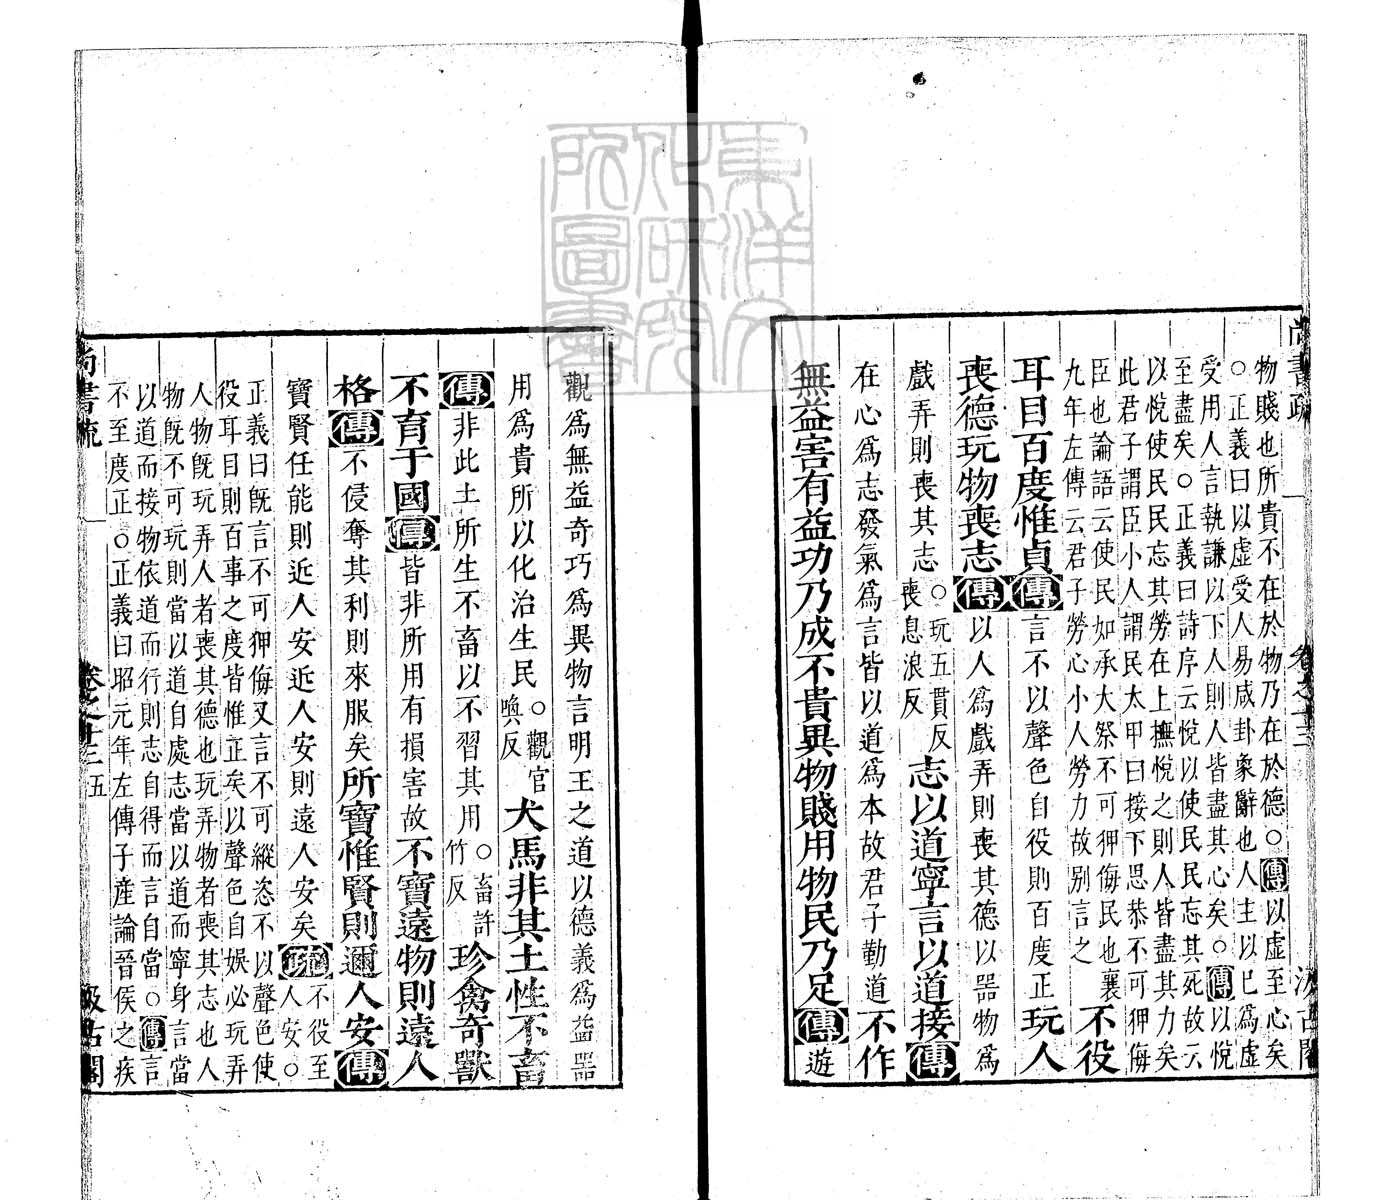 尚書疏 卷之十三 汲古閣
物賤也所貴不在於物乃在於德○傳以虛至心矣
○正義曰以虛受人易咸卦象辭也人主以已爲虛
受用人言執謙以下人則人皆盡其心矣○傳以悅
至盡矣○正義曰詩序云悅以使民民忘其死故云
以悅使民民忘其勞在上撫悅之則人皆盡其力矣
此君子謂臣小人謂民太甲曰接下思恭不可狎侮
臣也論語云使民如承大祭不可狎侮民也襄
九年左傳云君子勞心小人勞力故別言之
不役
耳目百度惟貞傳言不以聲色自役則百度正玩人
喪德玩物喪志傳以人爲戲弄則喪其德以器物爲
戲弄則喪其志○玩五貫反喪息浪反志以道寧言以道接傳
在心爲志發氣爲言皆以道爲本故君子勤道不作
無益害有益功乃成不貴異物賤用物民乃足傳遊
觀爲無益奇巧爲異物言明王之道以德義爲益器
用爲貴所以化治生民○觀官喚反犬馬非其土性不畜
傳非此土所生不畜以不習其用○畜許竹反珍禽奇獸
不育于國傳皆非所用有損害故不寶遠物則遠人
格傳不侵奪其利則來服矣所寶惟賢則邇人安傳
寶賢任能則近人安近人安則遠人安矣疏不役至人安○
正義曰旣言不可狎侮又言不可縱恣不以聲色使
役耳目則百事之度皆惟正矣以聲色自娛必玩弄
人物旣玩弄人者喪其德也玩弄物者喪其志也人
物旣不可玩則當以道自處志當以道而寧身言當
以道而接物依道而行則志自得而言自當○傳言
不至度正○正義曰昭元年左傳子産論晉侯之疾
尚書疏 卷之十三 五 汲古閣
東洋文化研究所圖書